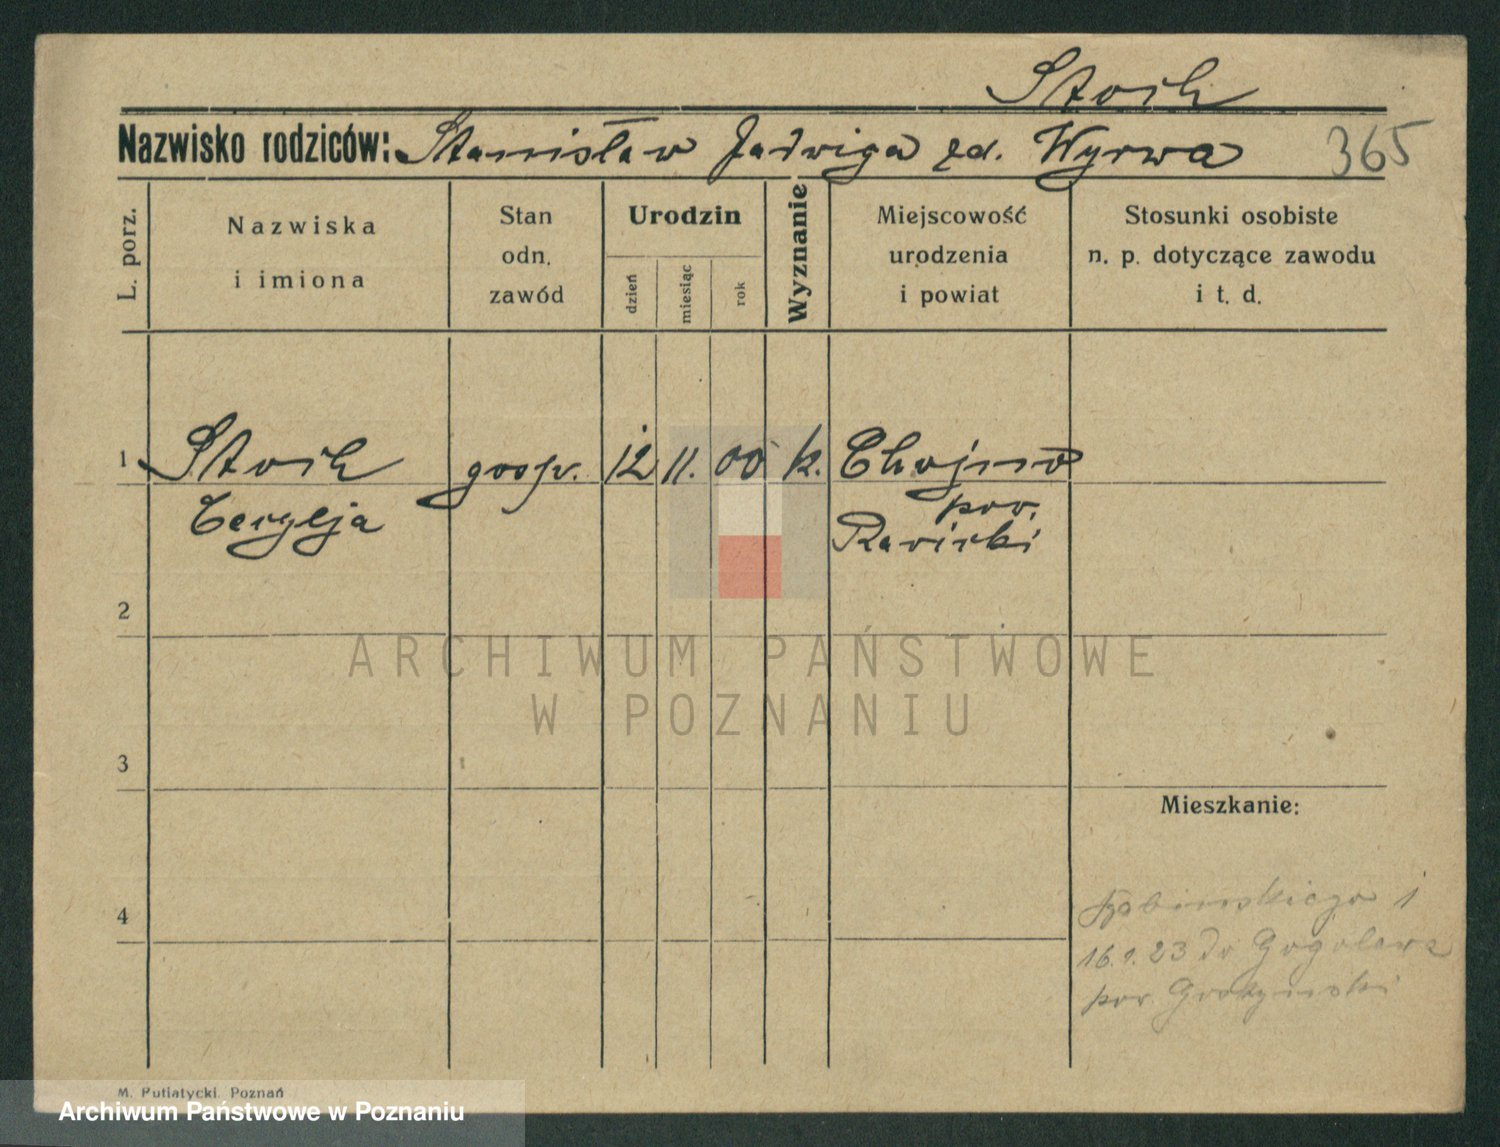 Stoik
Nazwisko rodziców: Stanisław Jadwiga zd. Wyrwa 365
L. porz.
Nazwiska
i imiona
Stan
odn.
zawód
Urodzin
dzień
miesiąc
rok
Wyznanie
Miejscowość
urodzenia
i powiat
Stosunki osobiste
n. p. dotyczące zawodu
i t. d.
1 Stoik gosp. 12 11. 00 k. Chojno
pow.
Cecylja Rawicki
2
ARCHIWUM PAŃSTWOWE
W POZNANIU
3
Mieszkanie:
4
1
16.9.23 do
pow. Gostyński
M. Putiatycki, Poznań
Archiwum Państwowe w Poznaniu